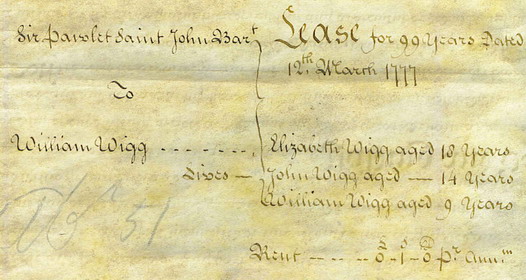 Sir Pawlet Saint John Bar.t
Lease for 99 Years Dated
12.th March 1777
To
William Wigg - - - - - - -
Lives — Elizabeth Wigg aged 18 Years
John Wigg aged — 14 Years
William Wigg aged 9 Years
£ s d
Rent - - - - 0 - 1 - 0 p.r Ann.m
51